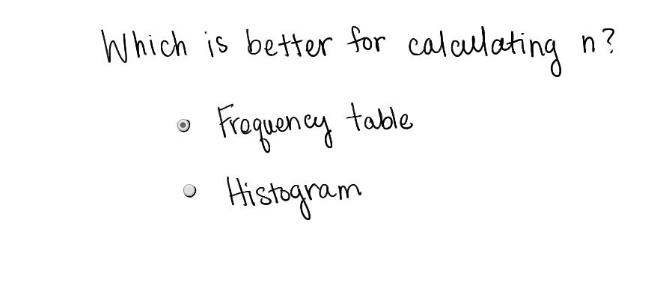 Which is better for calculating n?
Frequency table
Histogram